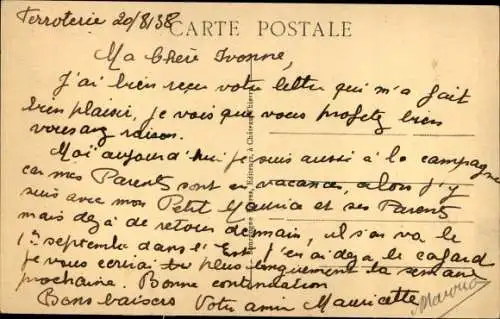 Ferroterie 20/8/38
CARTE POSTALE
Ma Chère Yvonne,
J'ai bien reçu votre lettre qui m'a fait
bien plaisir, je vois que vous profitez bien
vous avez raison.
Moi aujourd'hui je suis aussi à la campagne
car mes Parents sont en vacances, alors j'y
suis avec mon Petit Mauric et ses Parents
mais déjà de retour demain, il s'en va le
1er septembre dans l'Est j'en ai déjà le cafard
je vous écrirai plus longuement la semaine
prochaine. Bonne continuation
Bons baisers Votre amie Mauricette